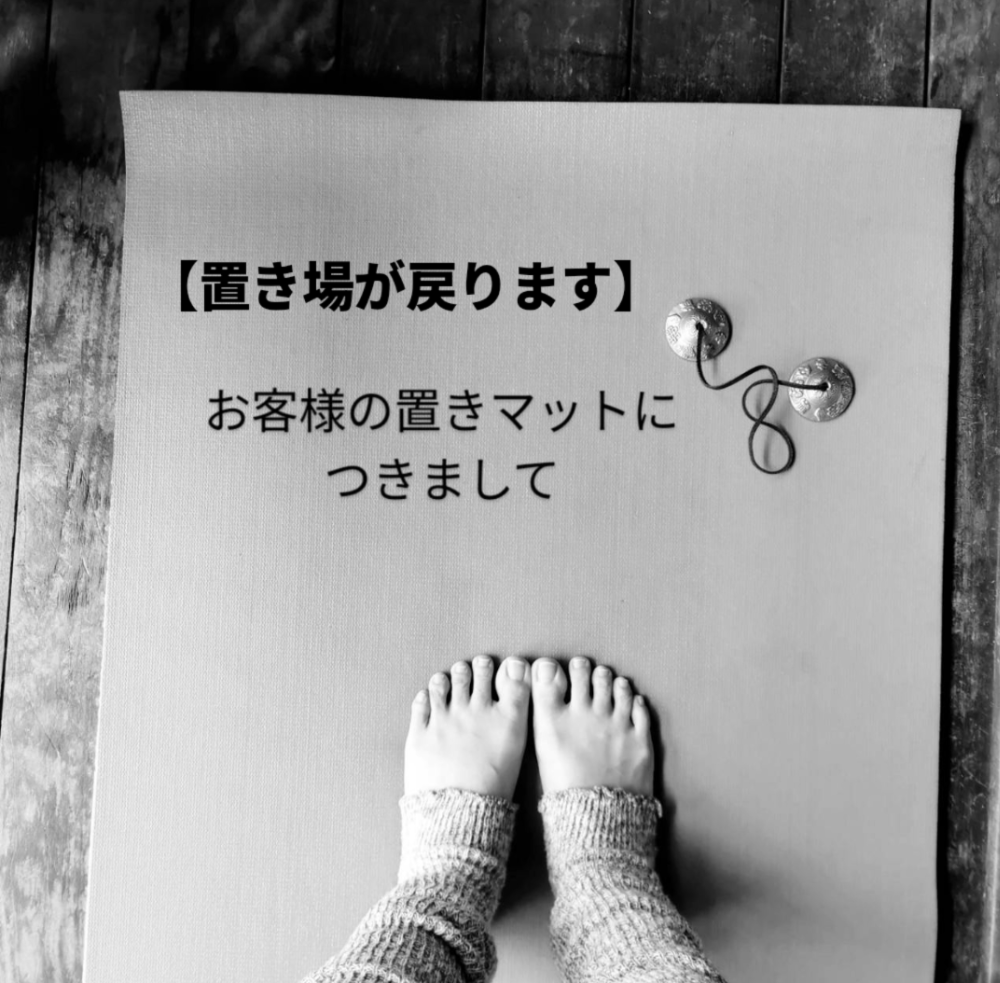 【置き場が戻ります】
お客様の置きマットに
つきまして